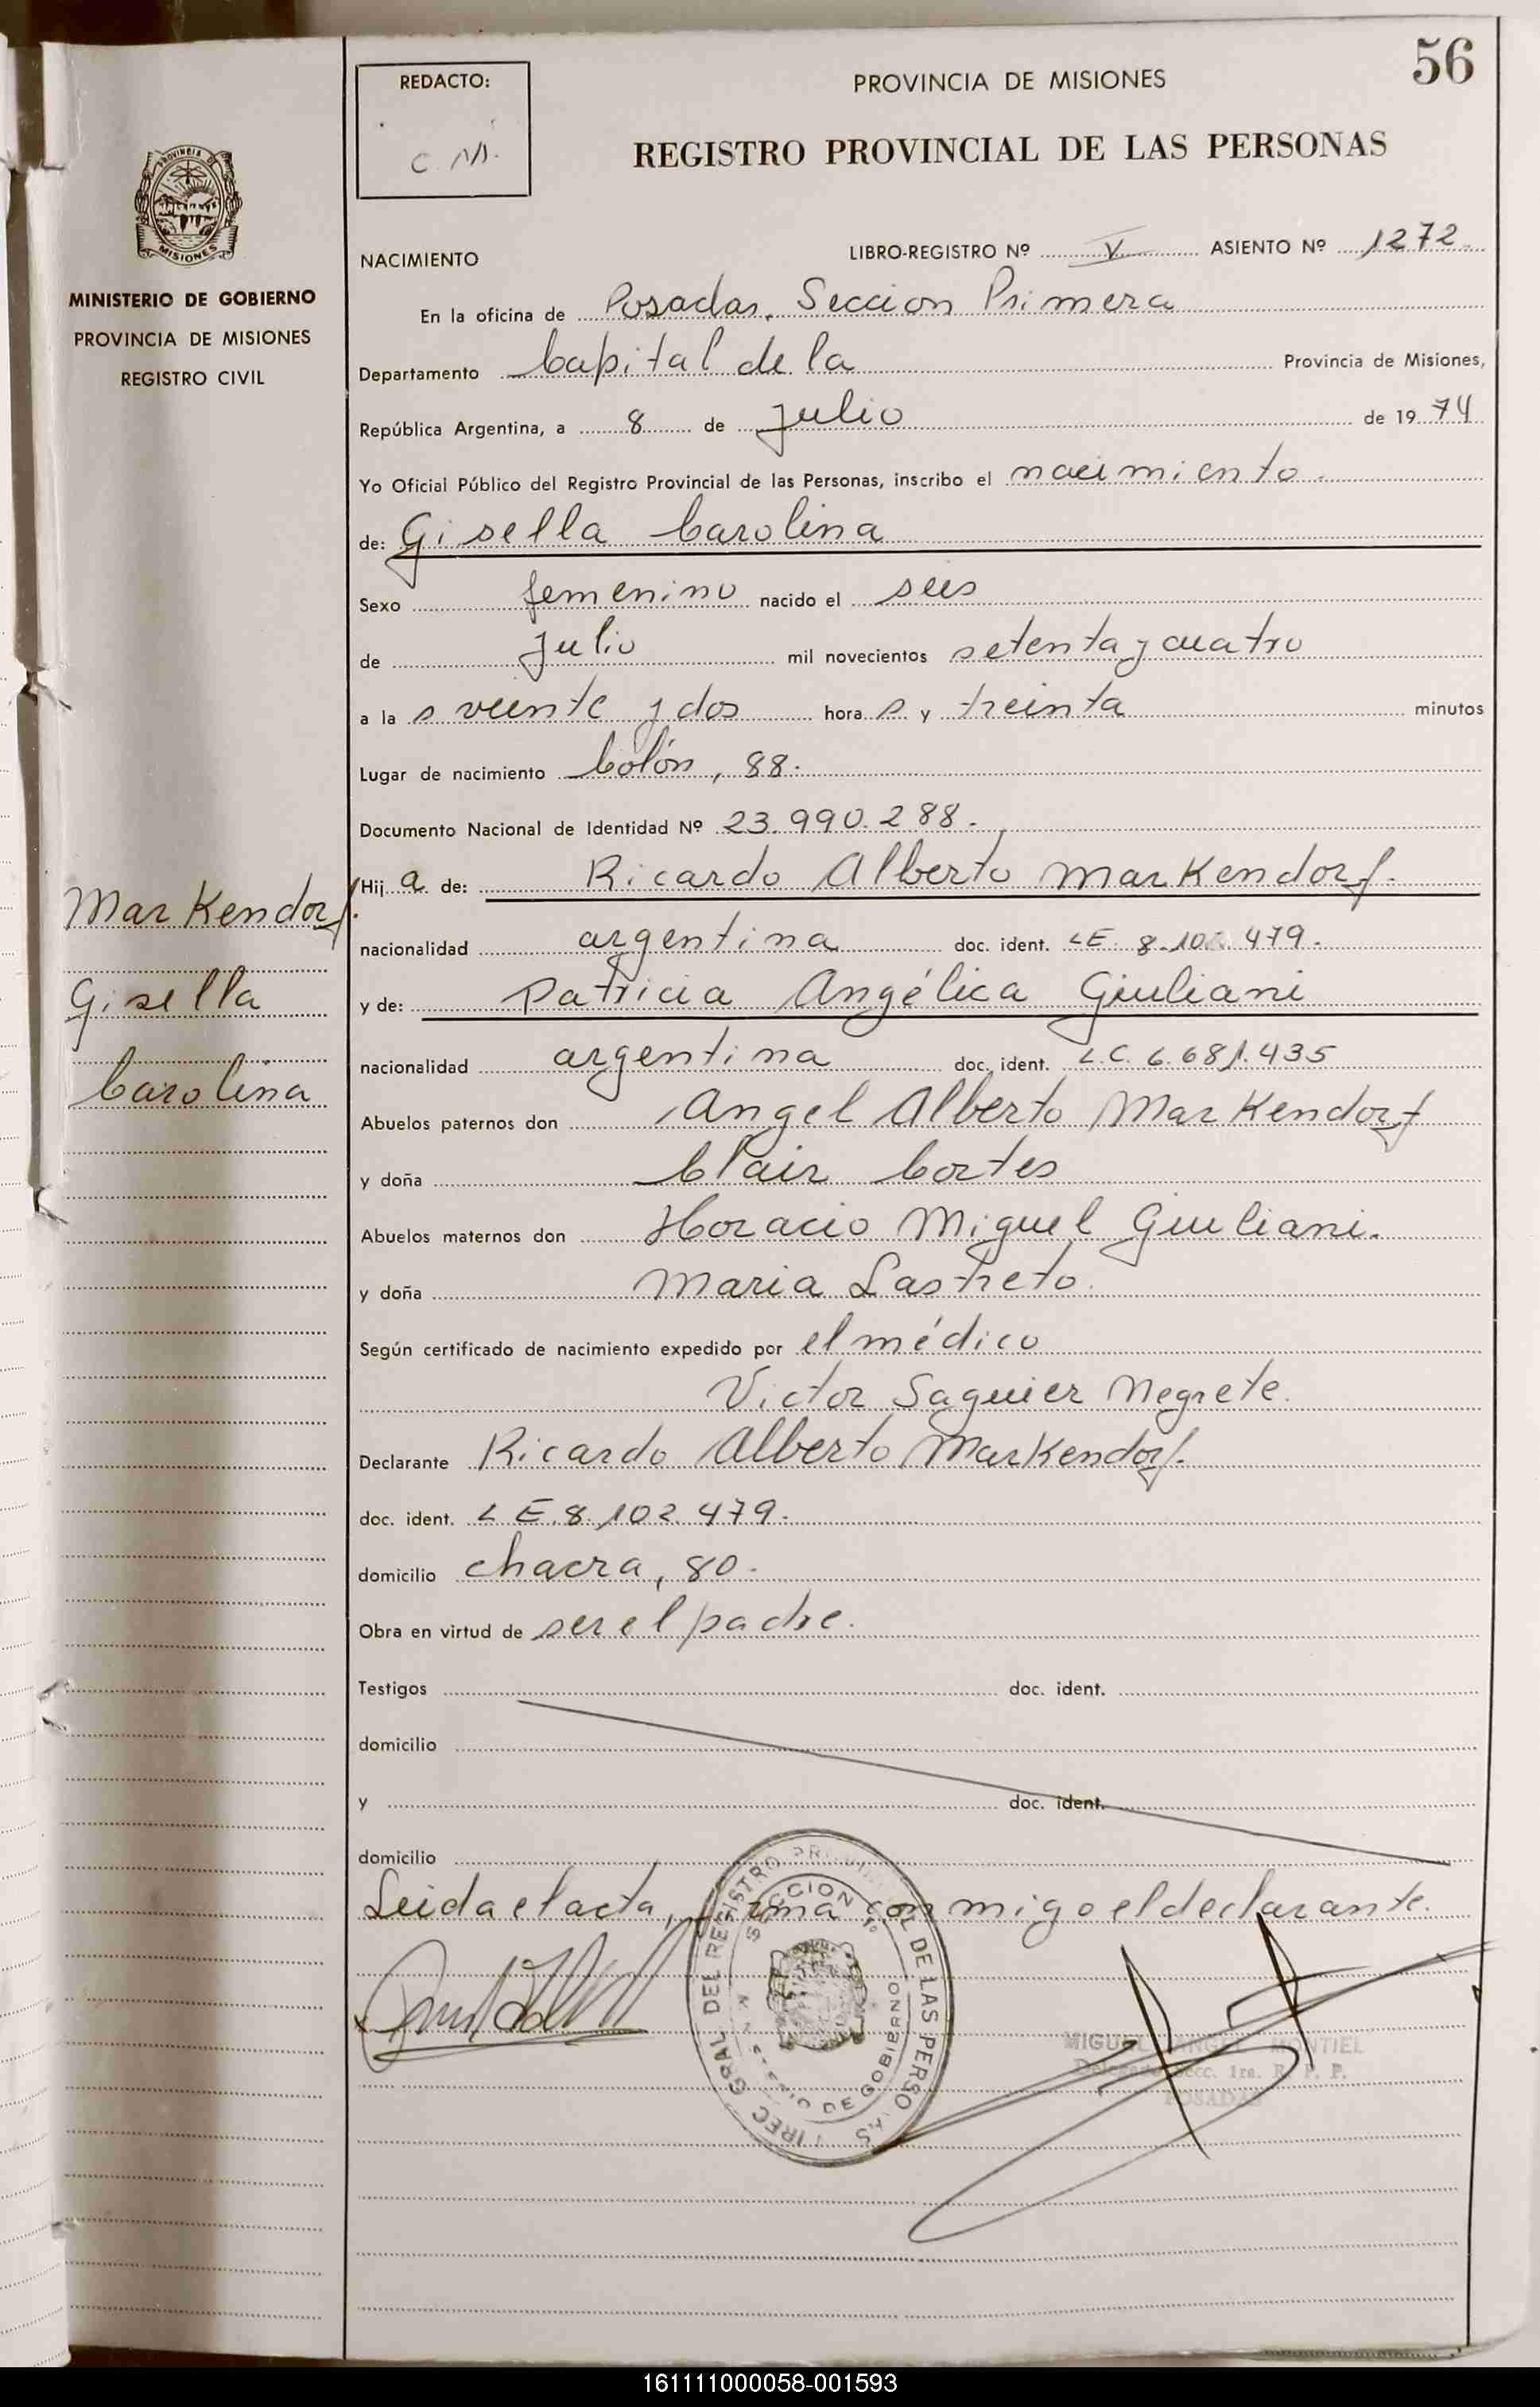 56
REDACTO:
C. M.
PROVINCIA DE MISIONES
REGISTRO PROVINCIAL DE LAS PERSONAS
PROVINCIA DE
MISIONES
MINISTERIO DE GOBIERNO
PROVINCIA DE MISIONES
REGISTRO CIVIL
NACIMIENTO
LIBRO-REGISTRO Nº V ASIENTO Nº 1272
En la oficina de Posadas. Seccion Primera
Departamento Capital de la Provincia de Misiones,
República Argentina, a 8 de Julio de 1974
Yo Oficial Público del Registro Provincial de las Personas, inscribo el nacimiento.
de: Gisella Carolina
Sexo femenino nacido el seis
de Julio mil novecientos setenta y cuatro
a la s veinte y dos hora s y treinta minutos
Lugar de nacimiento Colón, 88.
Documento Nacional de Identidad Nº 23.990.288.
Markendorf.
Gisella
Carolina
Hij a de: Ricardo Alberto Markendorf.
nacionalidad argentina doc. ident. LE. 8.102.479.
y de: Patricia Angélica Giuliani
nacionalidad argentina doc. ident. L.C. 6.681.435
Abuelos paternos don Angel Alberto Markendorf
y doña Clair Cortes
Abuelos maternos don Horacio Miguel Giuliani.
y doña Maria Lastreto.
Según certificado de nacimiento expedido por el médico
Victor Saguier Negrete.
Declarante Ricardo Alberto Markendorf.
doc. ident. LE. 8.102.479.
domicilio chacra, 80.
Obra en virtud de ser el padre.
Testigos doc. ident.
domicilio
y doc. ident.
domicilio
Leida el acta, firma conmigo el declarante.
DIREC. GRAL DEL REGISTRO PROVINCIAL DE LAS PERSONAS
SECCION 1º
MINISTERIO DE GOBIERNO
MIGUEL ANGEL MONTIEL
Delegado Secc. 1ra. R. P. P.
POSADAS
161111000058-001593